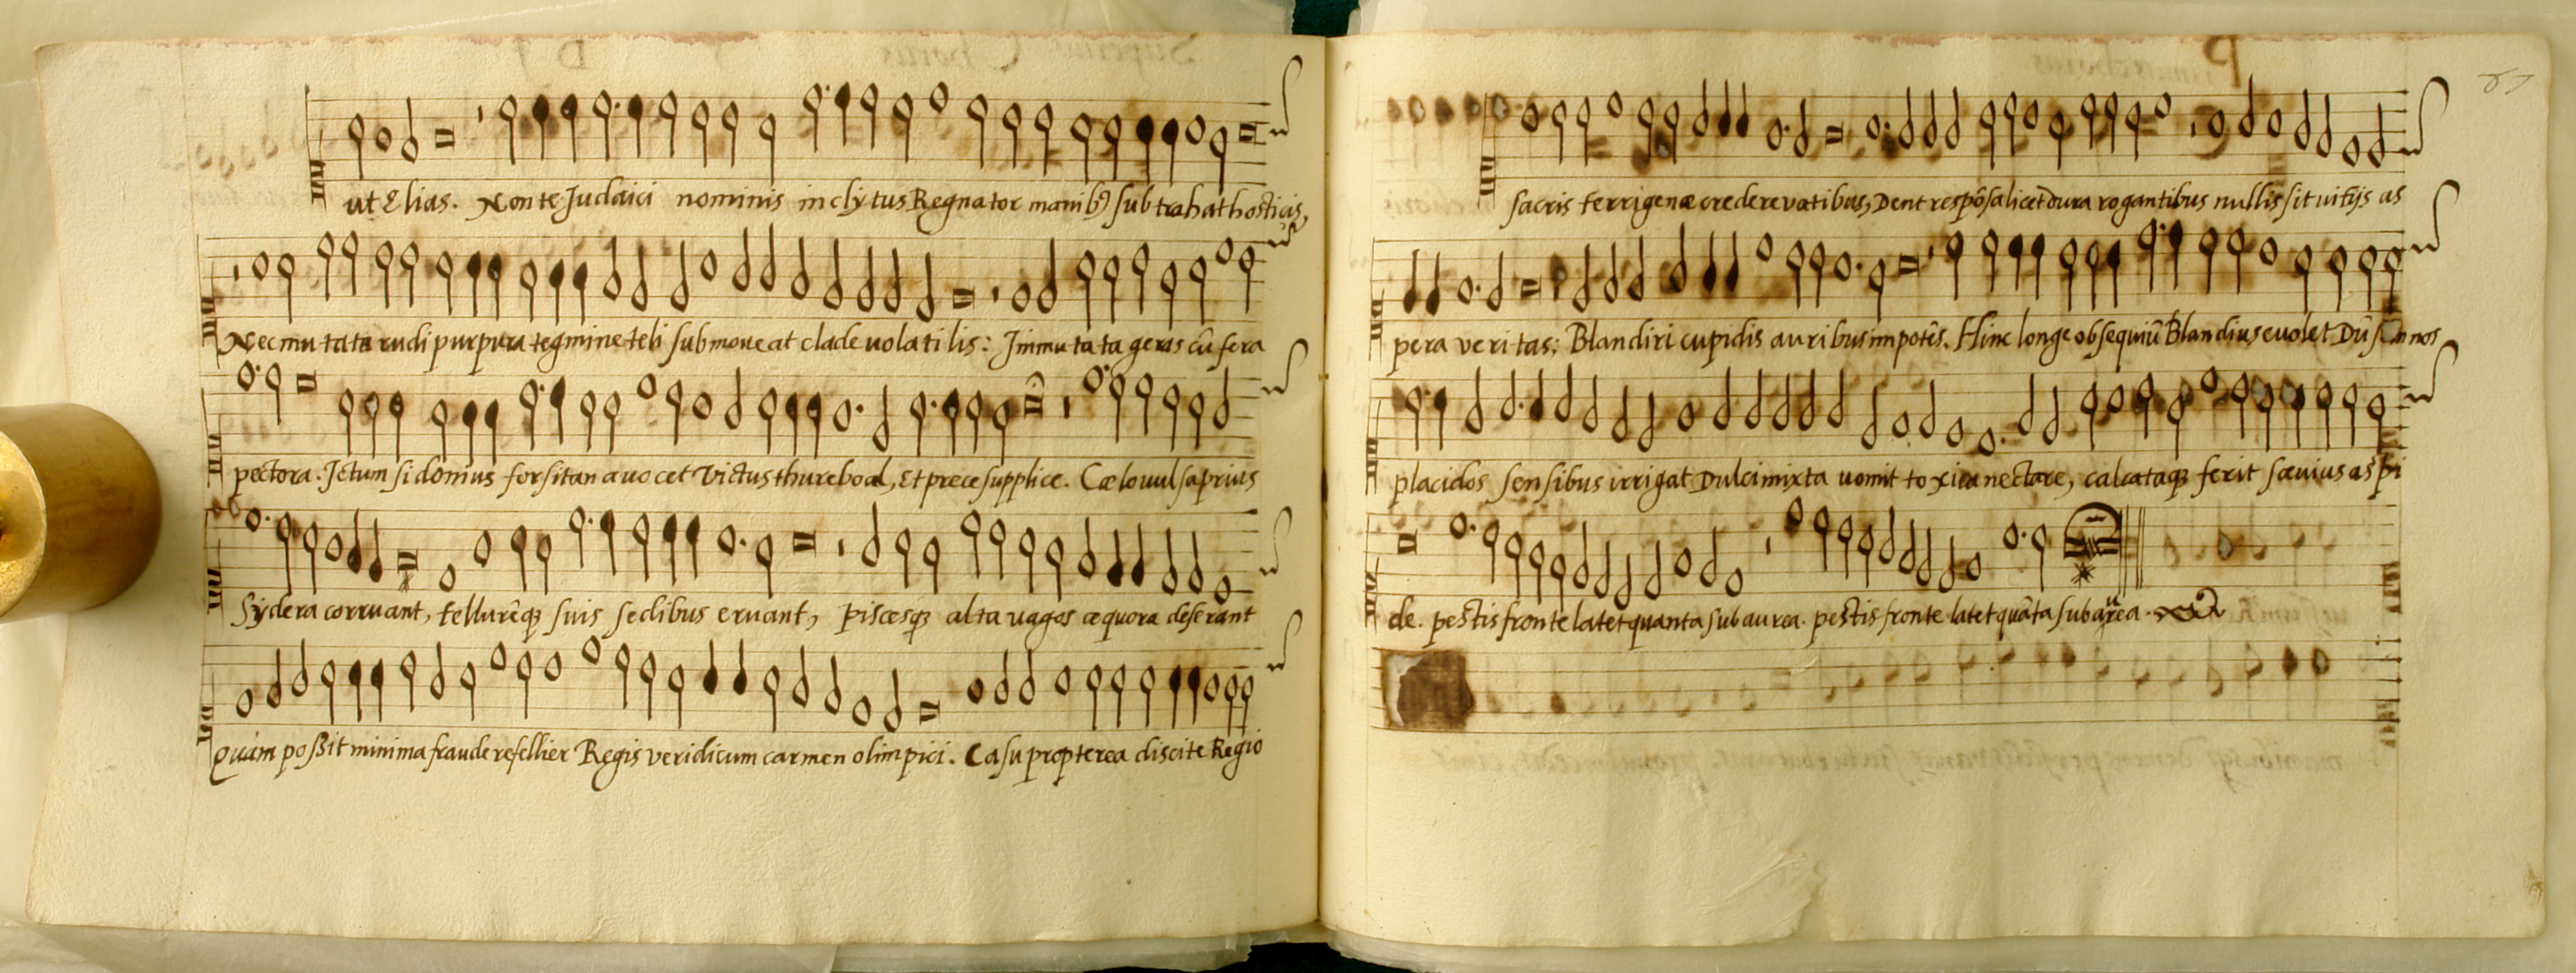 ut Elias. Non te Judaici nominis inclytus Regnator manibꝰ subtrahat hosticis,
Nec mutata rudi purpura tegmine teli submoueat clade uolatilis: Immutata geras cũ fera
pectora. Ictum sidonius forsitan auocet Victus thure boal, Et prece supplice. Cælo uulsa prius
Sydera corruant, tellurẽqꝫ suis sedibus eruant, piscesqꝫ alta uagos æquora deserant
Quàm poßit minima fraude refellier Regis veridicum carmen olimpici. Casu propterea discite Regio
sacris terrigenæ credere vatibus, Dent respõsa licet dura rogantibus nullis sit uitijs as
pera veritas: Blandiri cupidis auribus impotẽs. Hinc longe obsequiũ Blandius euolet Dũ sũmos
placidos sensibus irrigat Dulci mixta uomit toxica nectare, calcataqꝫ ferit sæuius aspi
de. pestis fronte latet quanta sub aurea. pestis fronte latet quãta sub aurea.